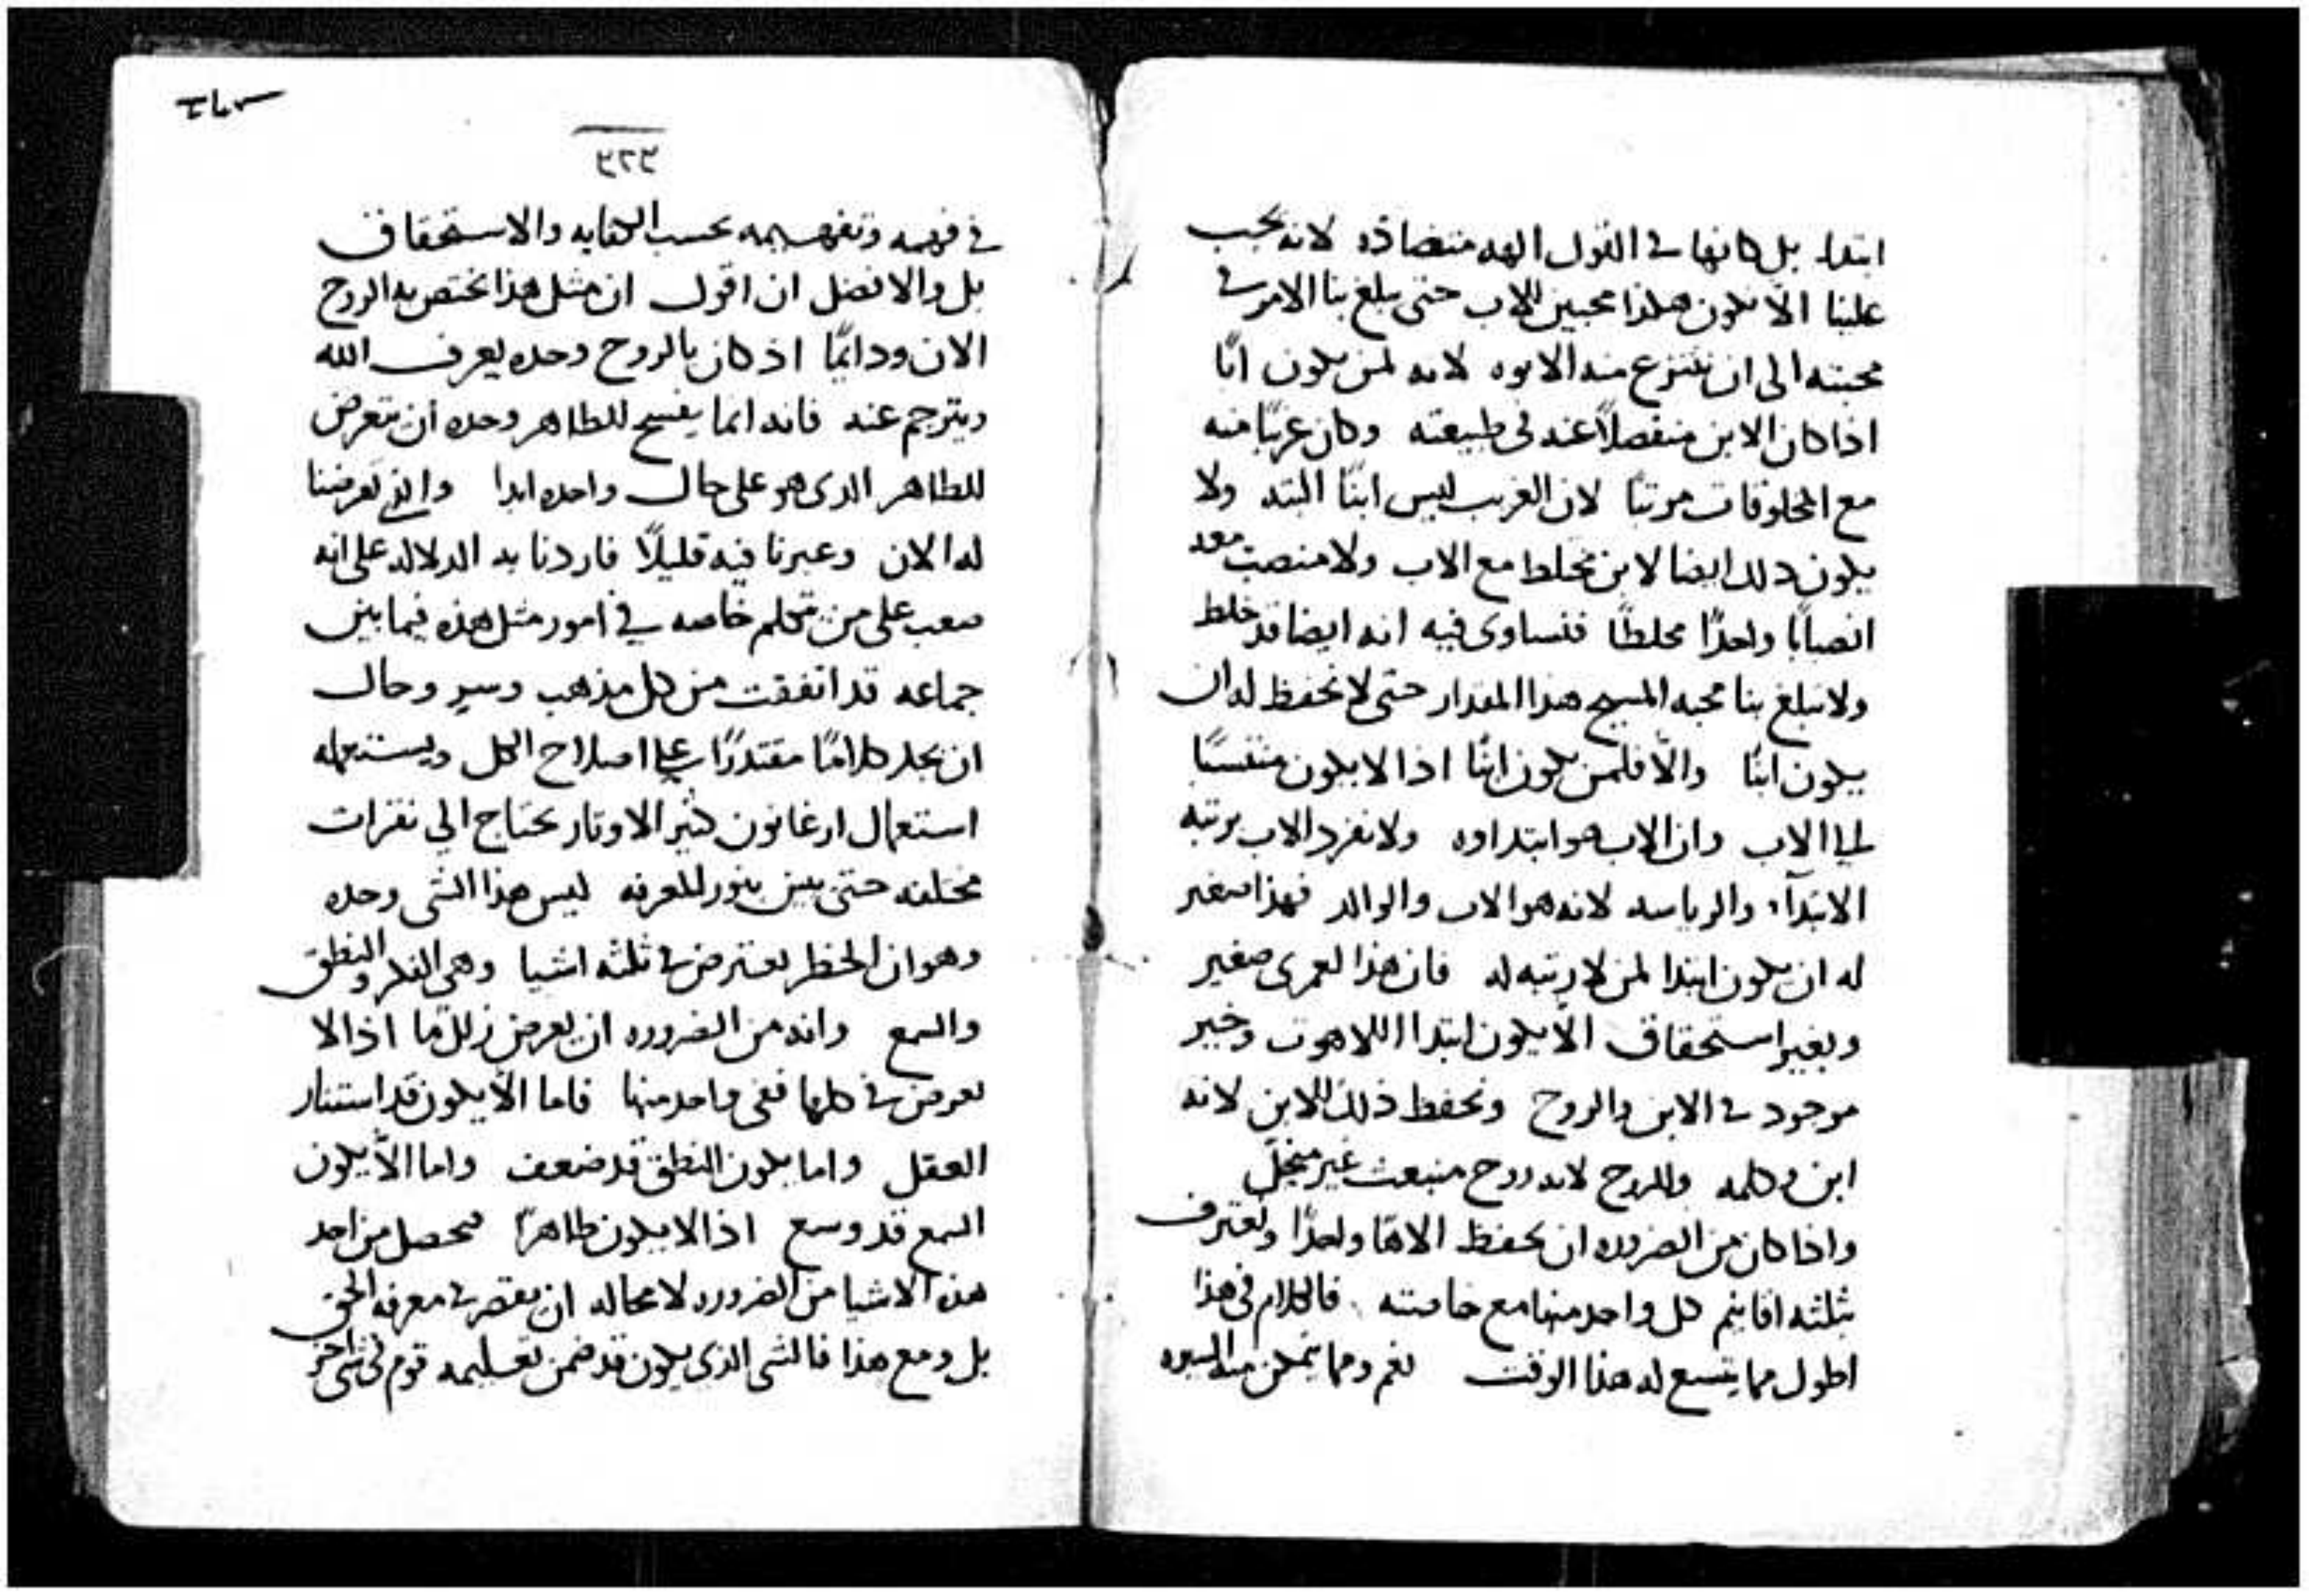 ابتدا بل كانها فى القول الهه متضاده لانه يجب
علينا الا نكون هكذا محبين للاب حتى يبلغ بنا الامر فى
محبته الى ان ننتزع منه الابوه لانه لمن يكون ابًا
اذا كان الابن منفصلاً عنه فى طبيعته وكان غربًا منه
مع المخلوقات مرتبًا لان الغريب ليس ابنًا البته ولا
يكون ذلك ايضا لابن مخلط مع الاب ولا منصب معه
انصبابًا واحدًا مخلطًا فتساوى فيه انه ايضا قد خلط
ولا تبلغ بنا محبه المسيح هذا المقدار حتى لا نحفظ له ان
يكون ابنًا والّا فلمن يكون ابنًا اذا لا يكون منتسبًا
الى الاب وان الاب هو ابتداوه ولا نفرد الاب برتبه
الابتدآء والرياسه لانه هو الاب والوالد فهذا صغير
له ان يكون ابتدا لمن لا رتبه له فان هذا لعمرى صغير
وبغير استحقاق الّا يكون ابتدا اللاهوت وخير
موجود فى الابن والروح ونحفظ ذلك للابن لانه
ابن وكلمه وللروح لانه روح منبعث غير منحلّ
واذا كان من الضروره ان نحفظ الاهًا واحدًا ونعترف
بثلثه اقانيم كل واحد منها مع خاصته فالكلام فى هذا
اطول مما يتسع له هذا الوقت نعم ومما يتمكن منه السيره
٣٢٣
فى فهمه وتفهيمه بحسب الكفايه والاستحقاق
بل والافضل ان اقول ان مثل هذا يختص به الروح
الان ودايمًا اذ كان بالروح وحده يعرف الله
ويترجم عنه فانه انما يفسح للطاهر وحده ان يتعرض
للطاهر الذى هو على حال واحده ابدا تعرضنا
له الان وعبرنا فيه قليلًا فاردنا به الدلاله على انه
صعب على من تكلم خاصه فى امور مثل هذه فيما بين
جماعه قد اتفقت من كل مذهب وسير وحال
ان يجد كلامًا مقتدرًا على اصلاح الكل ويستعمله
استعمال ارغانون كثير الاوتار يحتاج الى نقرات
مختلفه حتى بنور المعرفه ليس هذا الشى وحده
وهو ان الخطر يعترض فى ثلثه اشيا وهى الفكر والنطق
والسمع وانه من الضروره ان يعرض زلل ما اذا لا
يعرض فى كلها ففى واحد منها فاما الّا يكون قد استنار
العقل واما يكون النطق قد ضعف واما الّا يكون
السمع قد وسع اذا لا يكون طاهرًا فيحصل من احد
هذه الاشيا من الضروره لا محاله ان يقصر فى معرفه الحق
بل ومع هذا فالشى الذى يكون قد ضمن تعليمه قوم فى شى اخر